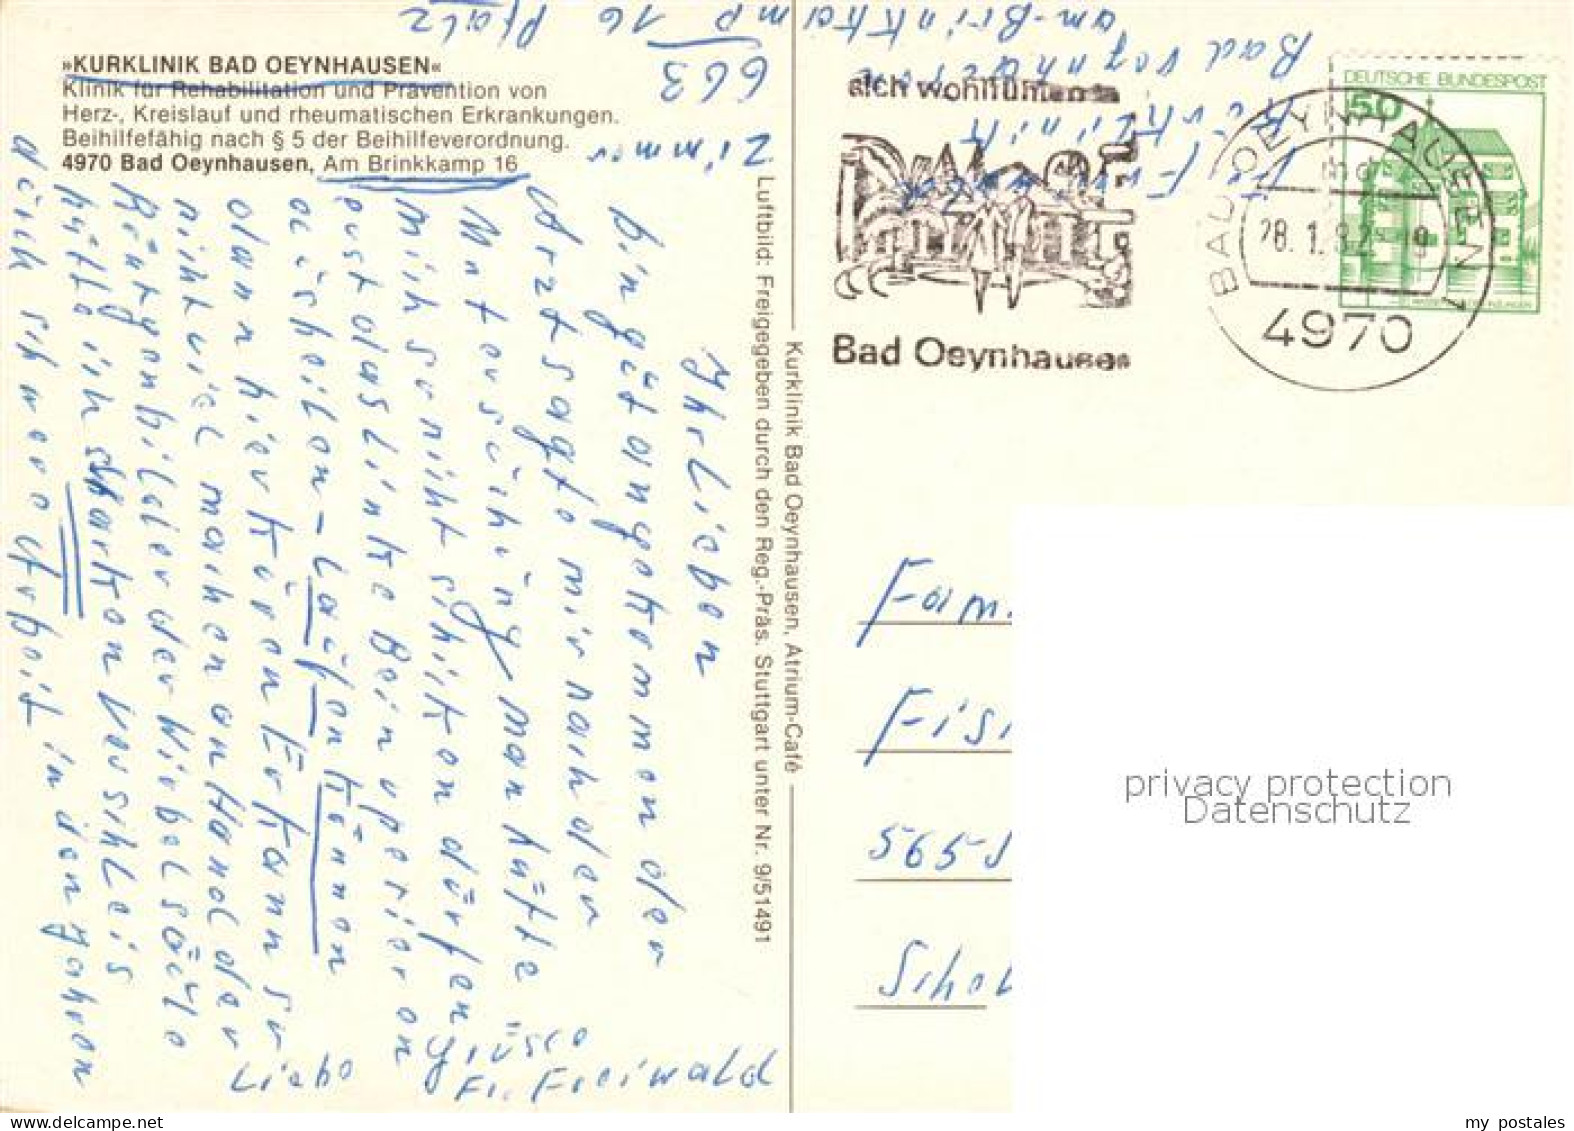 »KURKLINIK BAD OEYNHAUSEN«
Klinik für Rehabilitation und Prävention von
Herz-, Kreislauf und rheumatischen Erkrankungen.
Beihilfefähig nach § 5 der Beihilfeverordnung.
4970 Bad Oeynhausen, Am Brinkkamp 16
Ihr Lieben
bin güt angekommen der
Arzt sagte mir nach der
Untersüchüng man hätte
mich so nicht schicken dürfen
erst das linke Bein operieren
aüsheilen - Laüfen können
dann hier küren Er kann so
nicht viel machen an Hand der
Röntgenbilder der Wirbelsäüle
hätte ich starken Verschleis
dürch schwere Arbeit in den Jahren
Liebe Grüsse
Fr. Freiwald
Zimmer
663
Pfalz
Bad Oeynhausen
Kürklinik
Kurklinik Bad Oeynhausen, Atrium-Café
Luftbild: Freigegeben durch den Reg.-Präs. Stuttgart unter Nr. 9/51491
sich wohlfühlen in
Bad Oeynhausen
DEUTSCHE BUNDESPOST
50
BAD OEYNHAUSEN 1
28.1.82
4970
Fam.
Fis
565
Schol
privacy protection
Datenschutz
my postales
www.delcampe.net